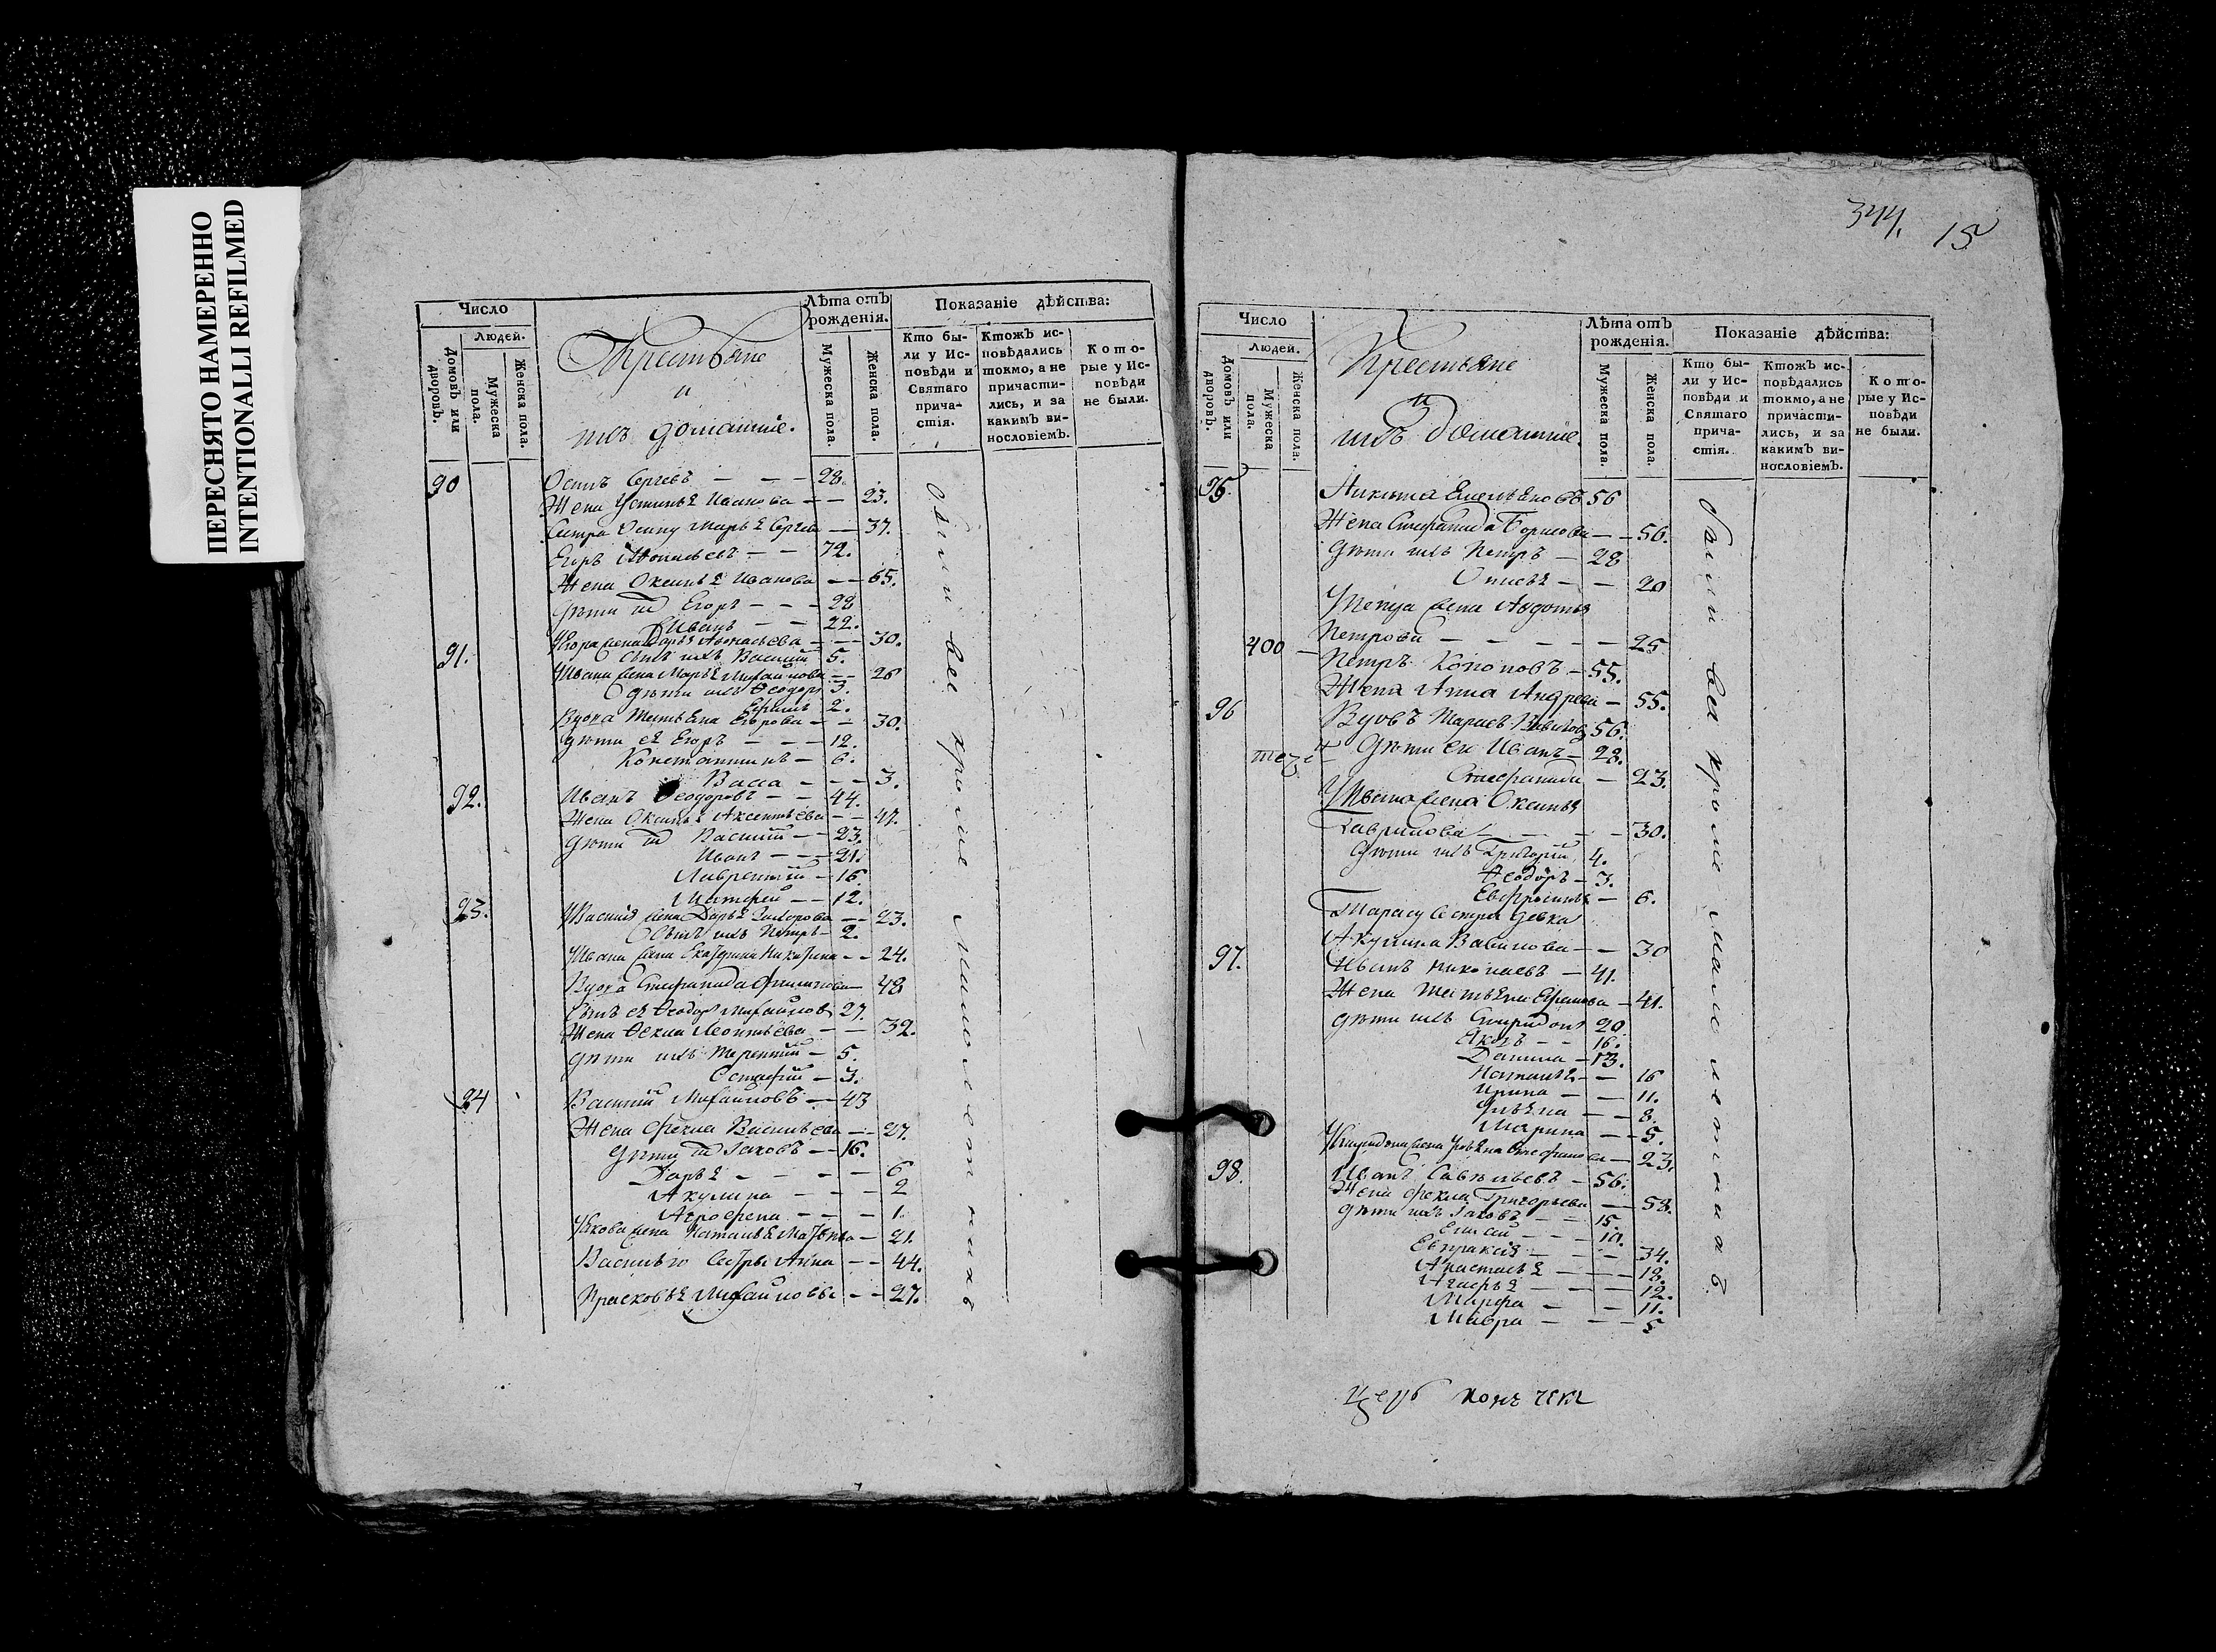 ПЕРЕСНЯТО НАМЕРЕННО
INTENTIONALLI REFILMED
Число
Людей.
Домовъ или дворовъ.
Мужеска пола.
Женска пола.
Крестьяне
и
ихъ домашніе.
Лѣта отъ рожденія.
Мужеска пола.
Женска пола.
Показаніе дѣйства:
Кто были у Исповѣди и Святаго причастія.
Ктожъ исповѣдались токмо, а не причастились, и за какимъ винословіемъ.
Которые у Исповѣди не были.
90 Осипъ Сергѣевъ — — — 28.
Жена Устинья Иванова — — 23.
Сестра Осипу Марья Сергѣева — 37.
Егоръ — — 72.
Жена Оксинья Иванова — — 65.
Дѣти Егоръ — — — 28
Иванъ — — 22.
Егора жена Дарья Афонасьева — — 30.
91. Сынъ ихъ Василій 5.
Ивана жена Марья Михайлова — — 26
дѣти ихъ Ѳеодоръ 3.
Ефимъ 2.
Вдова Татьяна Егорова — — 30.
дѣти ея Егоръ — — — 12.
Константинъ — 6.
Васса — — — 3.
92. Иванъ Ѳеодоровъ — — 44.
Жена Оксинья Аксентьева — — 47.
дѣти Василій — — 23.
Иванъ — — — 21.
Лаврентій — 16
Матфей — — 12.
93. Василія жена Дарья — — 23.
Сынъ ихъ Петръ — 2.
Ивана жена Екатерина — — 24.
Вдова Степанида Филипова — 48
Сынъ ея Ѳеодоръ Михайловъ 27.
Жена Ѳекла Леонтьева — — 32.
дѣти ихъ Терентій — 5.
Остафій — 3.
94 Василій Михайловъ — 43
Жена Ѳекла Васильева — — 27.
дѣти Іаковъ — — 16.
Дарья — — — — 6
Акулина — — — 2
Агрофена — — — 1.
Якова жена Наталья — 21.
Василью Сестры Анна — — 44.
Прасковья Михайловы — — 27.
Были все кроме малолетнихъ
344. 15
Число
Людей.
Домовъ или дворовъ.
Мужеска пола.
Женска пола.
Крестьяне
и
ихъ домашніе.
Лѣта отъ рожденія.
Мужеска пола.
Женска пола.
Показаніе дѣйства:
Кто были у Исповѣди и Святаго причастія.
Ктожъ исповѣдались токмо, а не причастились, и за какимъ винословіемъ.
Которые у Исповѣди не были.
95. Никита Емельяновъ 56
Жена Степанида Борисова — — 56.
дѣти ихъ Петръ — 28
— — 20
жена Авдотья
Петрова — — — — — 25
400 Петръ Кононовъ — 55.
Жена Анна Андреева — 55.
96 Вдовъ Тарасъ 56.
дѣти ея Иванъ — 28.
Степанида — 23.
Ивана жена Оксинья
Гаврилова — — — — 30.
дѣти ихъ Григорій 4.
Ѳеодоръ — 3.
Евфросинья — 6.
Тарасу сестра девка
Акулина Вавилова — — 30
97. Иванъ Николаевъ — 41.
Жена Татьяна Ефимова — 41.
дѣти ихъ Спиридонъ 20.
Яковъ — — 16.
Данила — 13.
Наталья — — 16
Ирина — — 11.
Ульяна — — 8.
Марина — — 5.
Спиридона жена Ульяна — 23.
98. Иванъ Савельевъ — 56.
Жена Ѳекла Григорьева — 58.
дѣти ихъ Іаковъ — — 15.
Елисей — — — 10.
Евпраксія — — — 34.
Анастасья — — — 18.
Агафья — — — 12.
Марфа — — 11.
Мавра — — — 5
Были все кроме малолетнихъ